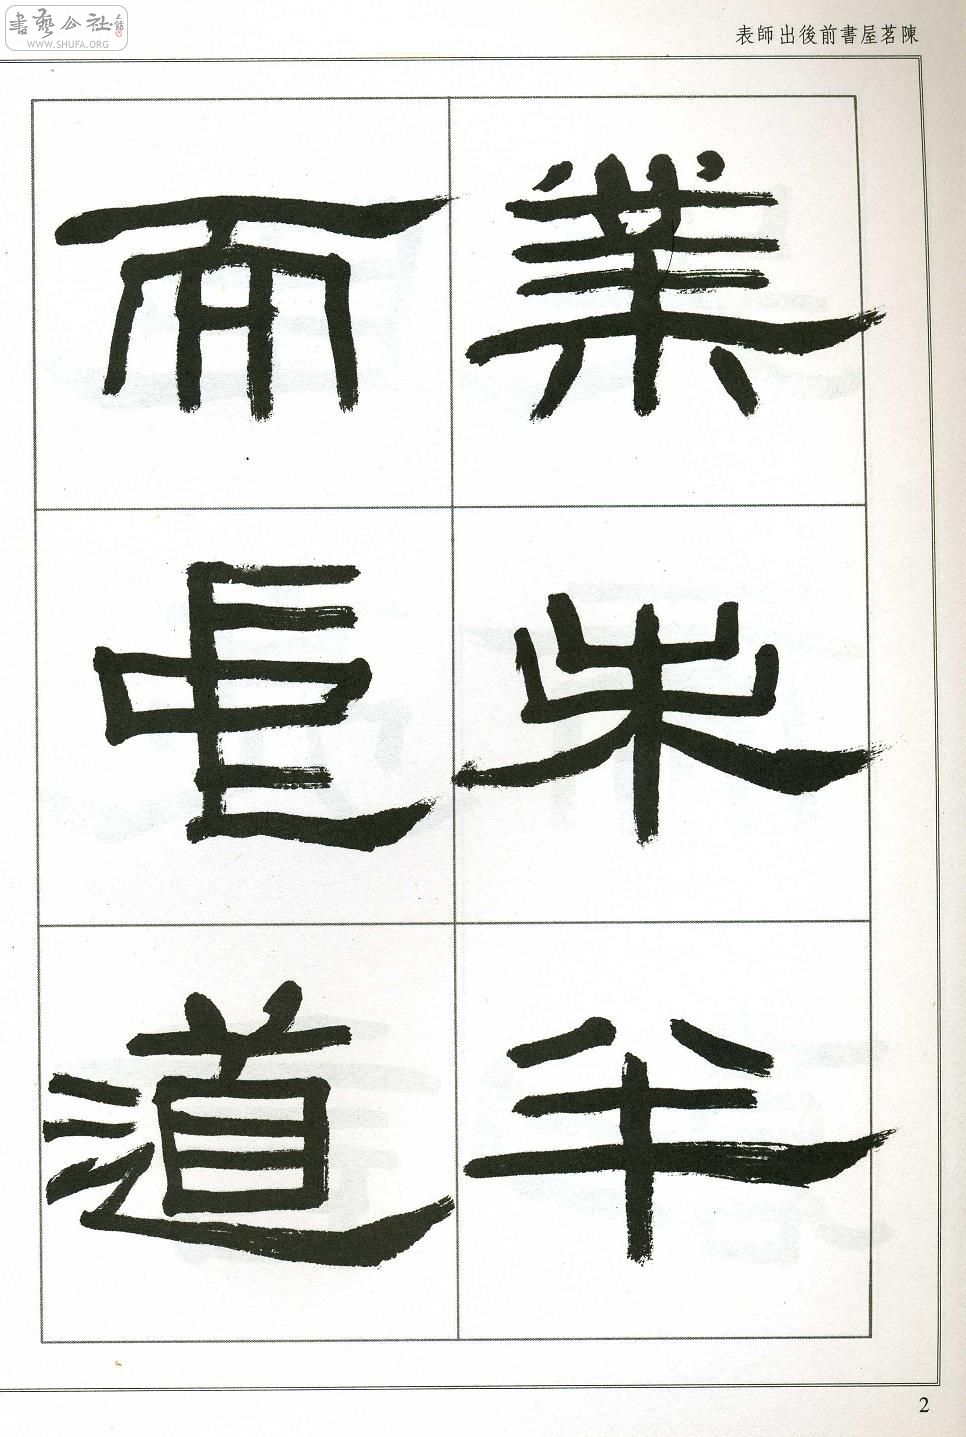 書藝公社
WWW.SHUFA.ORG
陳茗屋書前後出師表
業未半
而中道
2